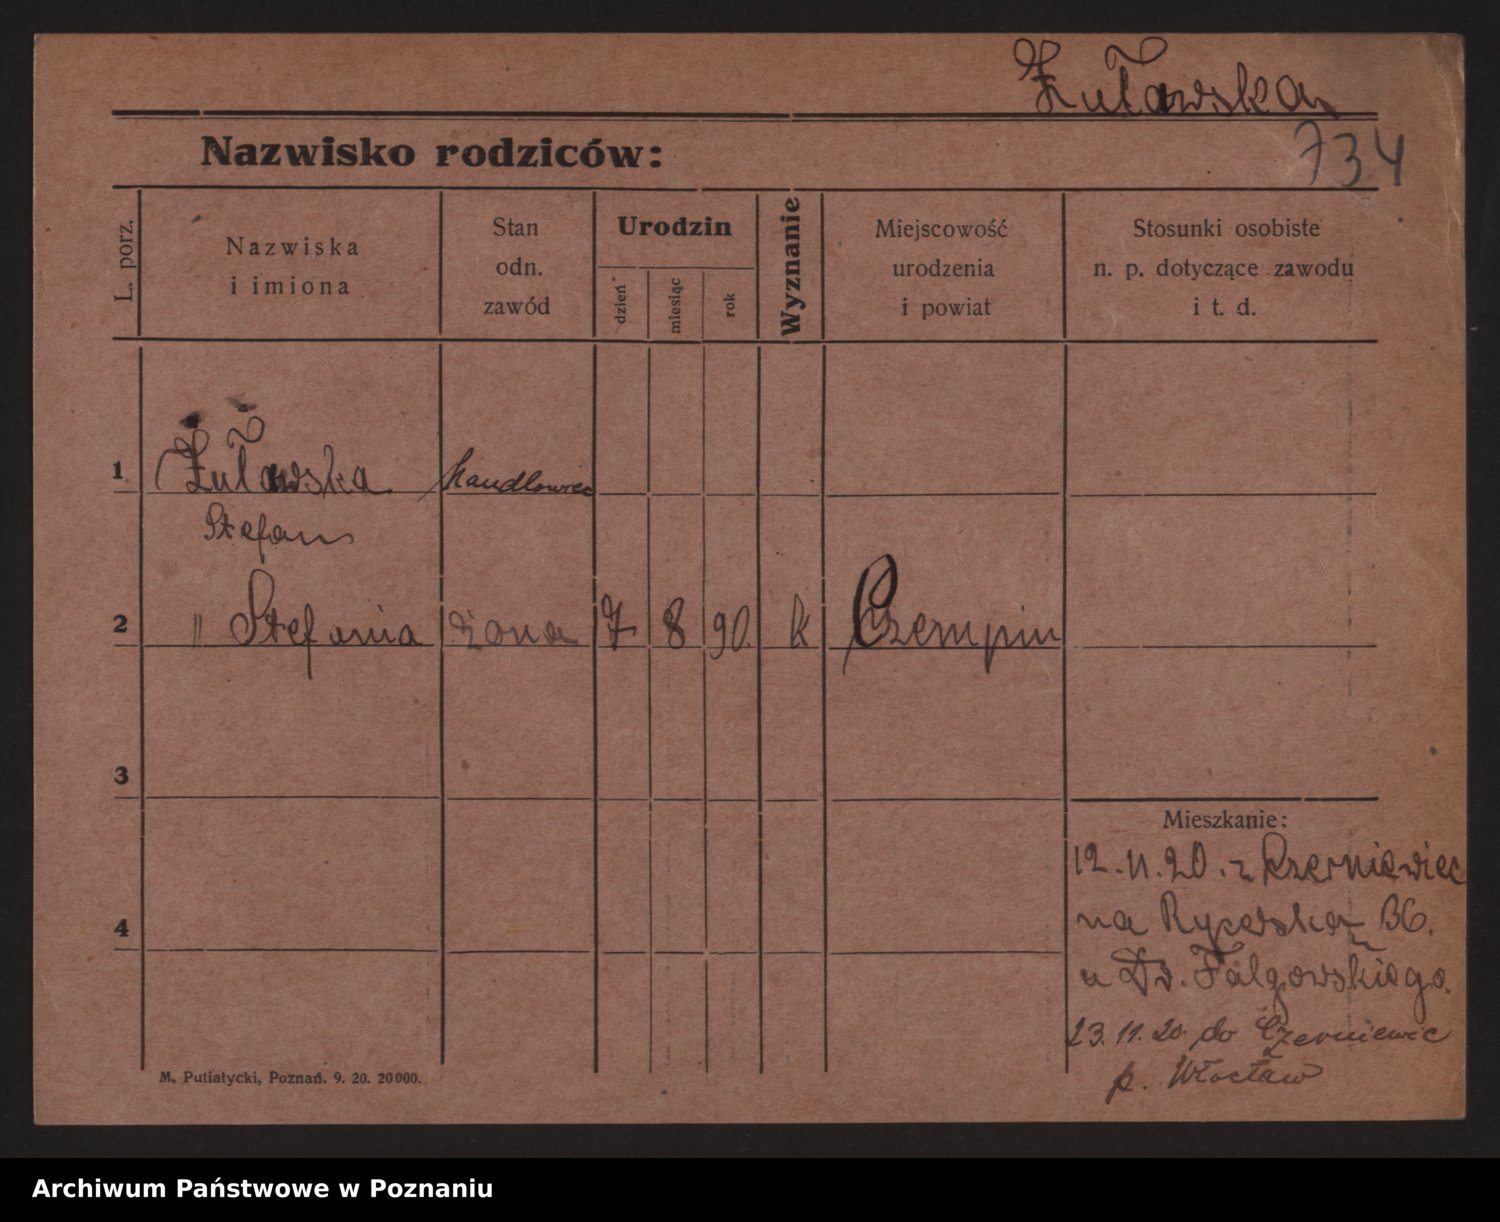 Żuławska
734
Nazwisko rodziców:
L. porz.
Nazwiska
i imiona
Stan
odn.
zawód
Urodzin
dzień
miesiąc
rok
Wyznanie
Miejscowość
urodzenia
i powiat
Stosunki osobiste
n. p. dotyczące zawodu
i t. d.
1 Żuławska handlowiec
Stefan
2 " Stefania żona 7 8 90. k Czempin
3
Mieszkanie:
12.11.20. z Czerniewiec
na Rycerska 36.
4
u Dr. Falgowskiego.
23.11.20. do Czerniewic
p. Włocław
M. Putiatycki, Poznań. 9. 20. 20000.
Archiwum Państwowe w Poznaniu